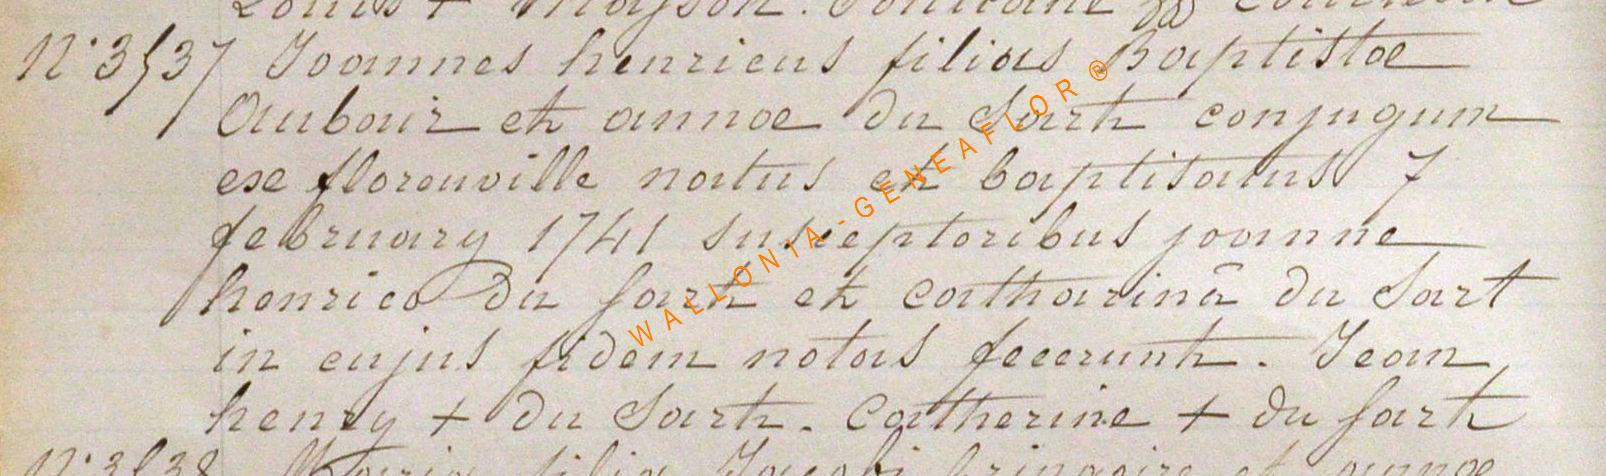 Louis + Mayson.
N° 3537 Joannes henricus filius Baptistae
Aubouir et annae du Sart conjugum
ex florenville natus et baptisatus 7
february 1741 susceptoribus joanne
henrico du Sart et catharinâ du Sart
in cujus fidem notas fecerunt. Jean
henry + du Sart. Catherine + du Sart
N° 3538 Maria filia Jacobi et annae
WALLONIA-GENEAFLOR®